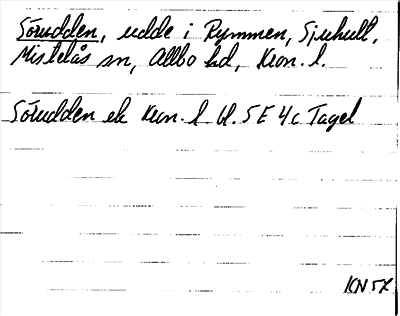 Sörudden, udde i Rymmen, Sjuhult,
Mistelås sn, Allbo hd, Kron. l.
Sörudden ek Kron. l bl. 5 E 4 c Tagel
KN 5X